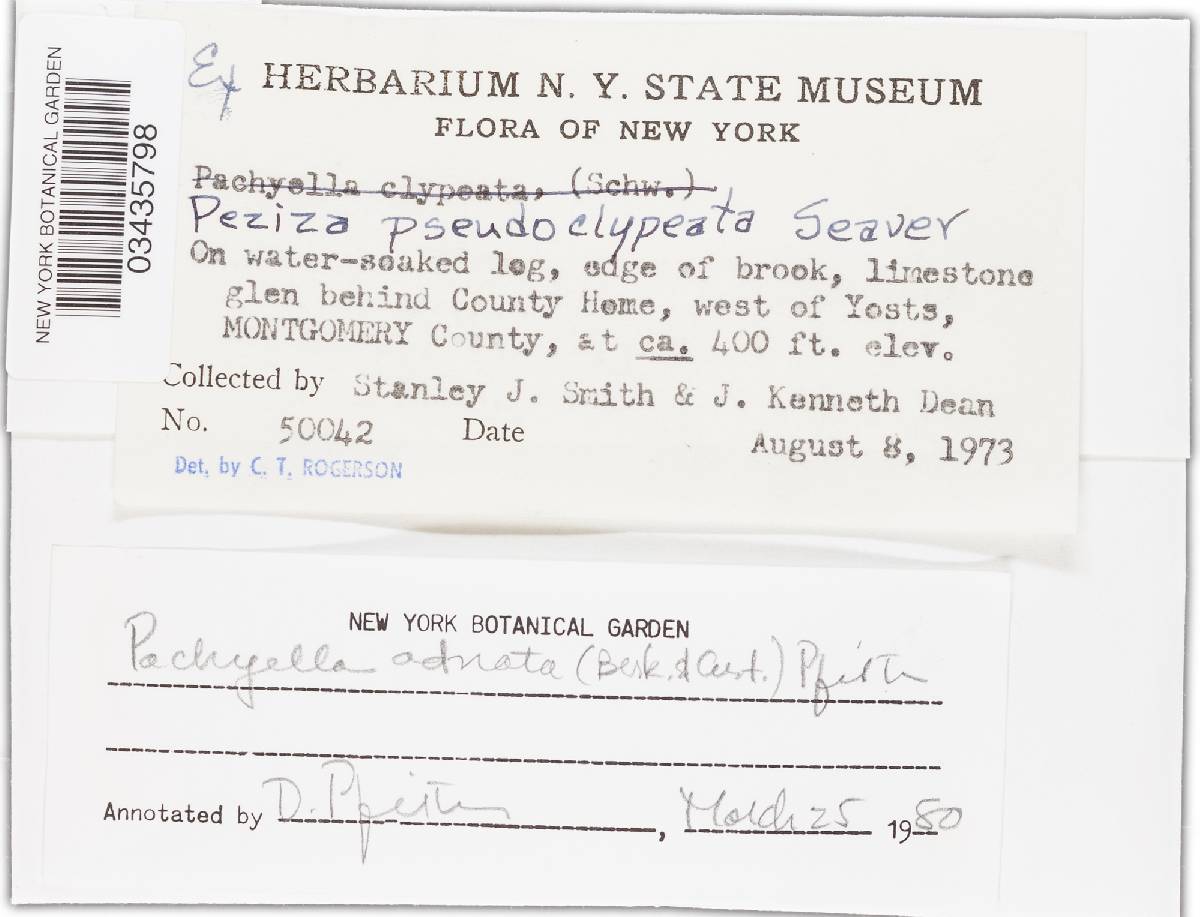 NEW YORK BOTANICAL GARDEN
03435798
Ex HERBARIUM N. Y. STATE MUSEUM
FLORA OF NEW YORK
Pachyella clypeata, (Schw.)
Peziza pseudoclypeata Seaver
On water-soaked log, edge of brook, limestone
glen behind County Home, west of Yosts,
MONTGOMERY County, at ca. 400 ft. elev.
Collected by Stanley J. Smith & J. Kenneth Dean
No. 50042 Date August 8, 1973
Det. by C. T. ROGERSON
NEW YORK BOTANICAL GARDEN
Pachyella adnata (Berk. & Curt.) Pfister
Annotated by D. Pfister, March 25 1980